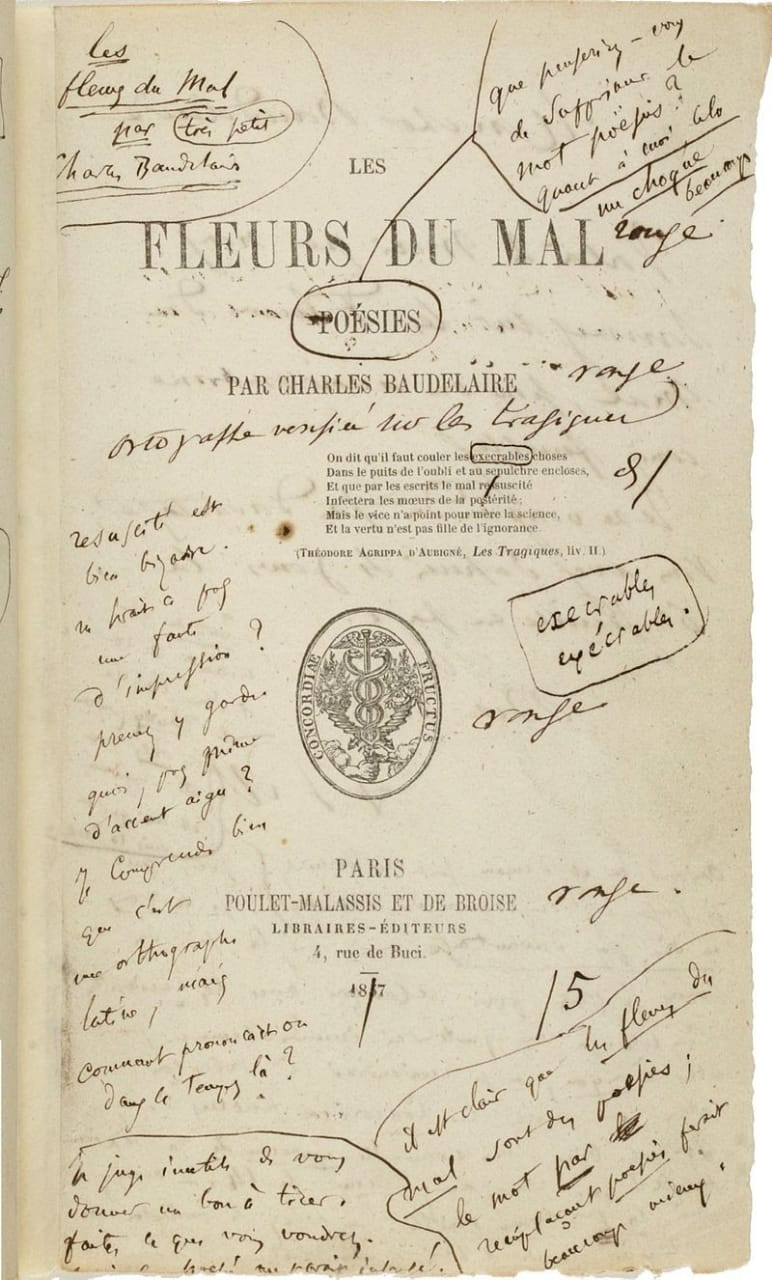 les
fleurs du Mal
par très petit
Charles Baudelaire
que penseriez-vous
de supprimer le
mot poësies ?
quant à moi cela
me choque
beaucoup
rouge.
LES
FLEURS DU MAL
POÉSIES
PAR CHARLES BAUDELAIRE
rouge
ortografe vérifiée sur les tragiques
On dit qu'il faut couler les execrables choses
Dans le puits de l'oubli et au sepulchre encloses,
Et que par les escrits le mal ressuscité
Infectera les mœurs de la postérité;
Mais le vice n'a point pour mère la science,
Et la vertu n'est pas fille de l'ignorance.
(THÉODORE AGRIPPA D'AUBIGNÉ, Les Tragiques, liv. II.)
resuscité est
bien bizarre.
ne serait-ce pas
une faute
d'impression ?
prenez y garde
quoi, pas même
d'accent aigu ?
je comprends bien
que c'est
une orthographe
latine, mais
comment prononçait-on
dans le temps là ?
execrables
exécrables.
CONCORDIÆ FRUCTUS
rouge
PARIS
POULET-MALASSIS ET DE BROISE
rouge.
LIBRAIRES-ÉDITEURS
4, rue de Buci.
1857
/5
il est clair que les fleurs du
mal sont des poësies ;
le mot par
remplaçant poësies ferait
beaucoup mieux.
Je juge inutile de vous
donner un bon à tirer.
faites ce que vous voudrez.